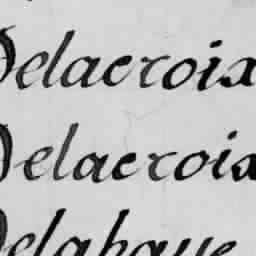 Delacroix
Delacroix
Delahaye